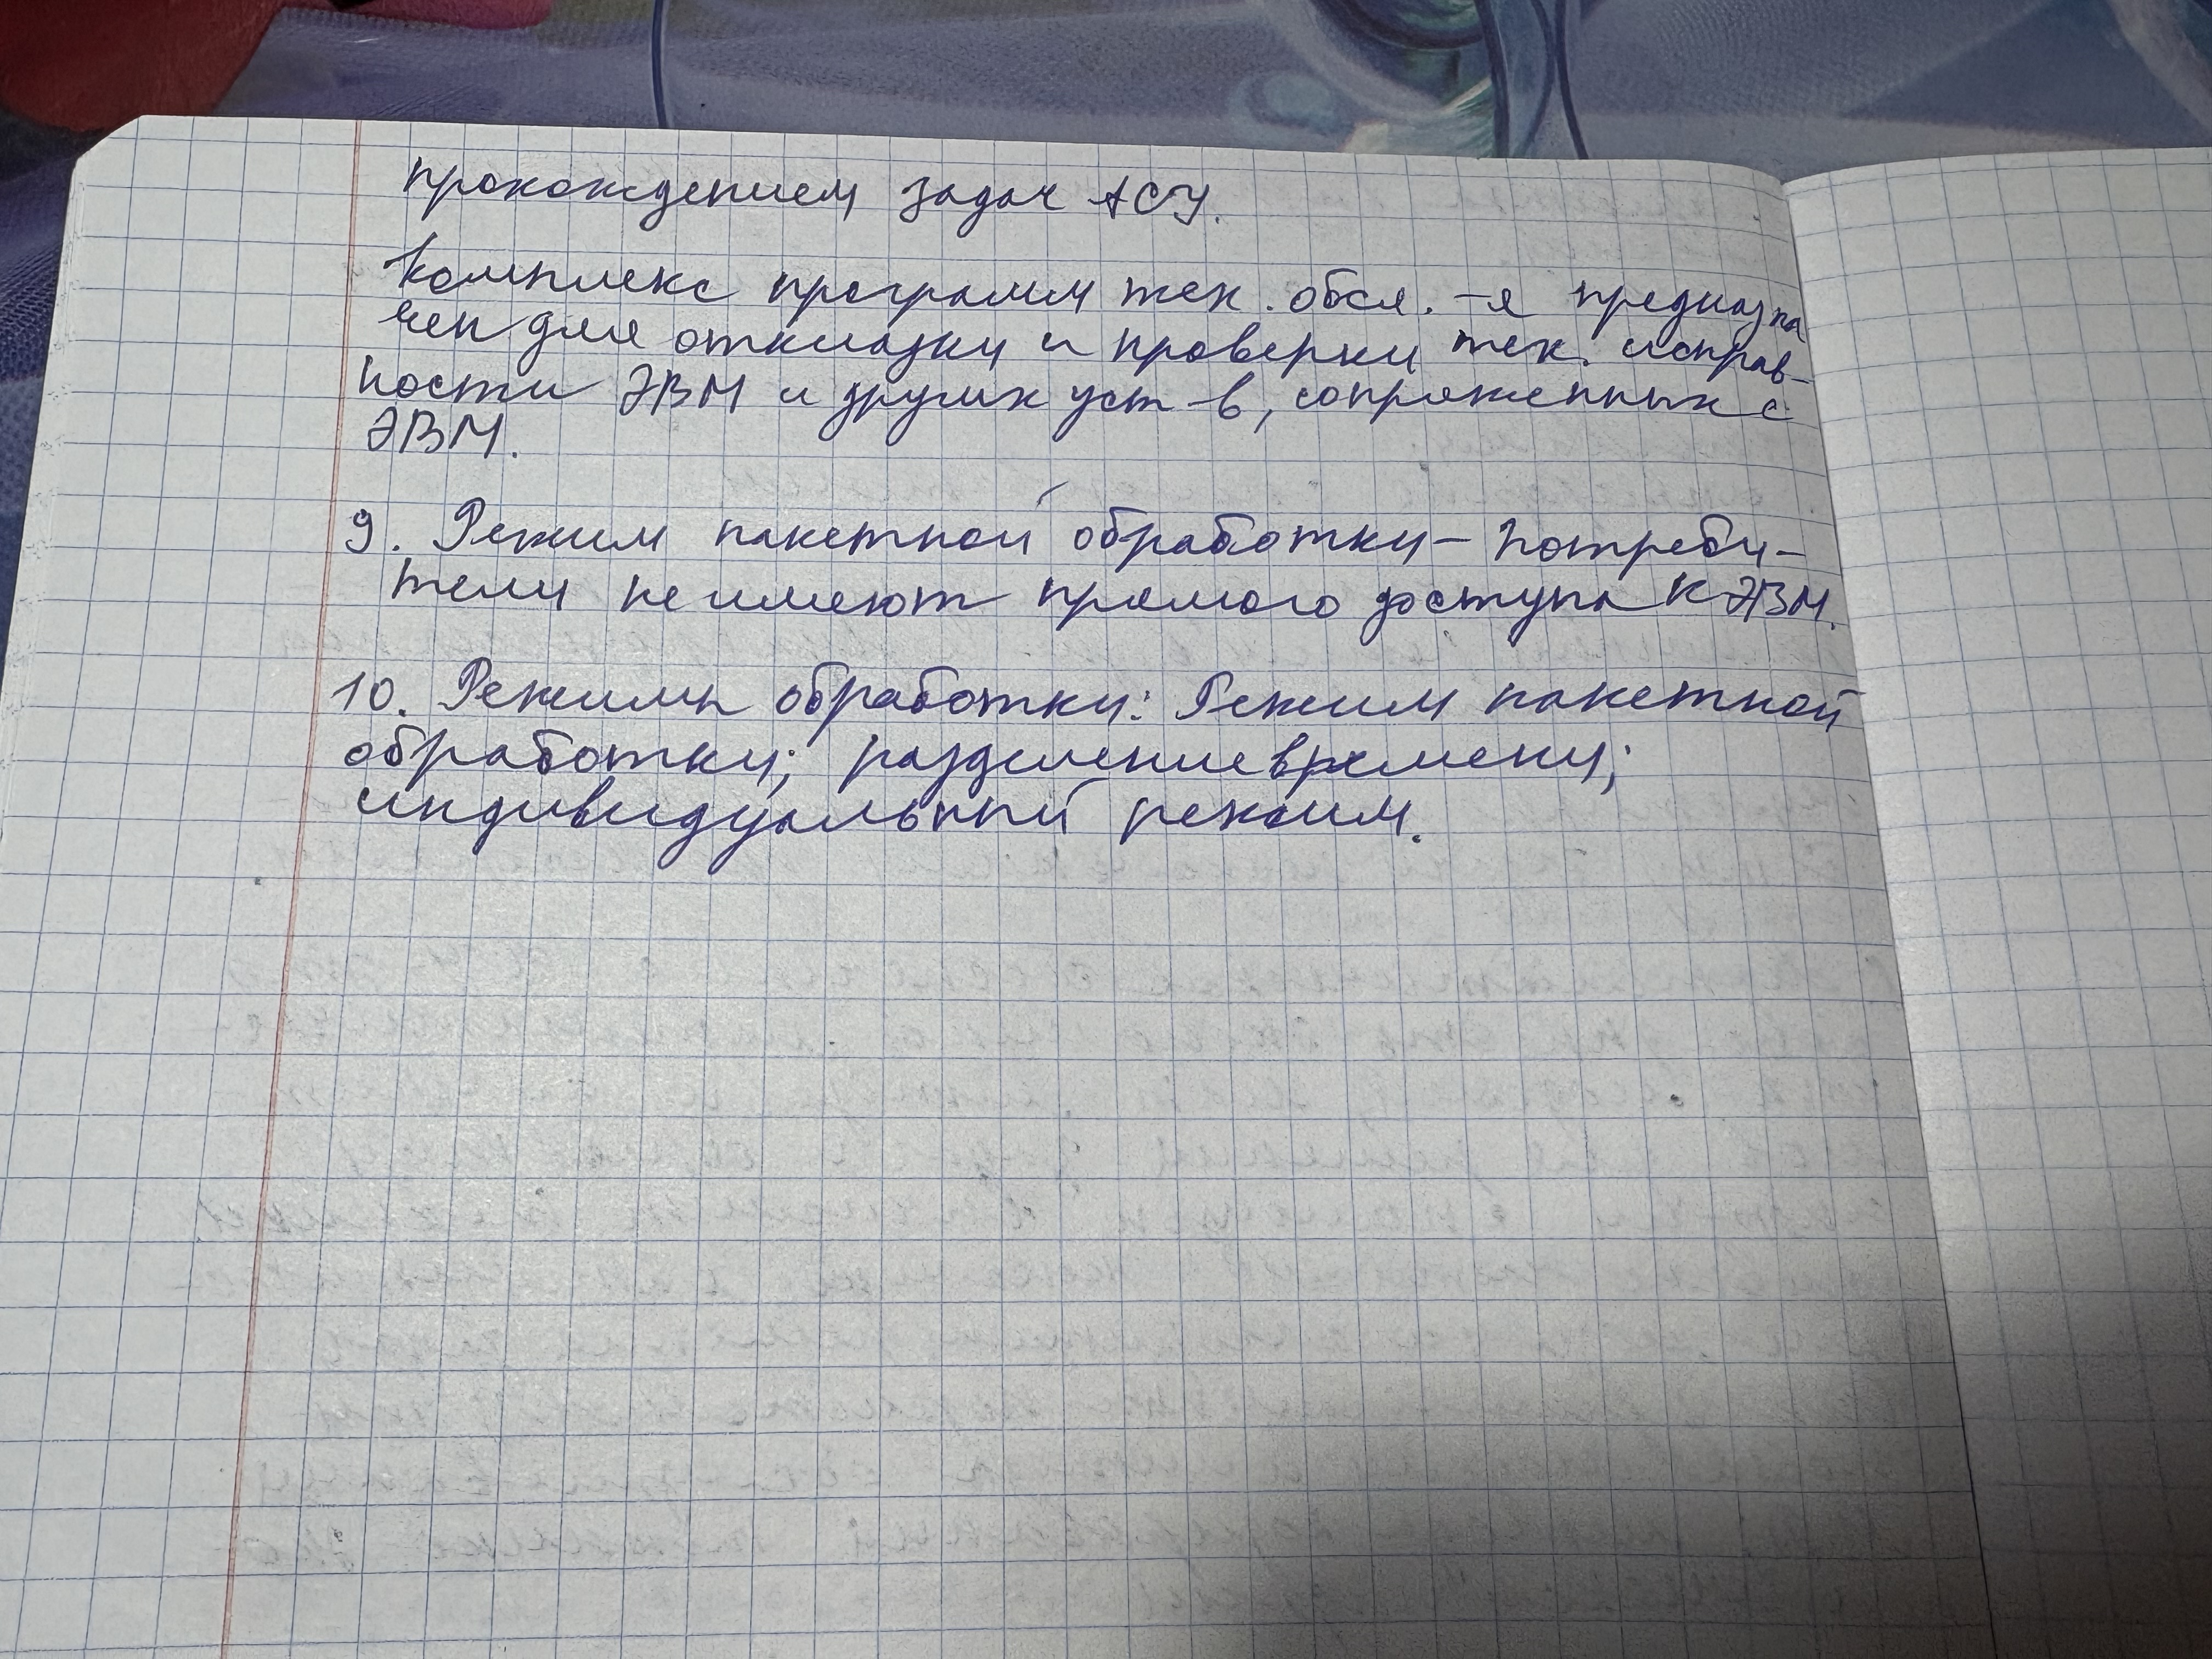 прохождением задач АСУ.
Комплекс программ тех. обсл.-я предназна
чен для откладки и проверки тех. исправ-
ности ЭВМ и других уст-в, сопряженных с
ЭВМ.
9. Режим пакетной обработки – потреби-
тели не имеют прямого доступа к ЭВМ.
10. Режимы обработки: Режим пакетной
обработки; разделение времени;
индивидуальный режим.